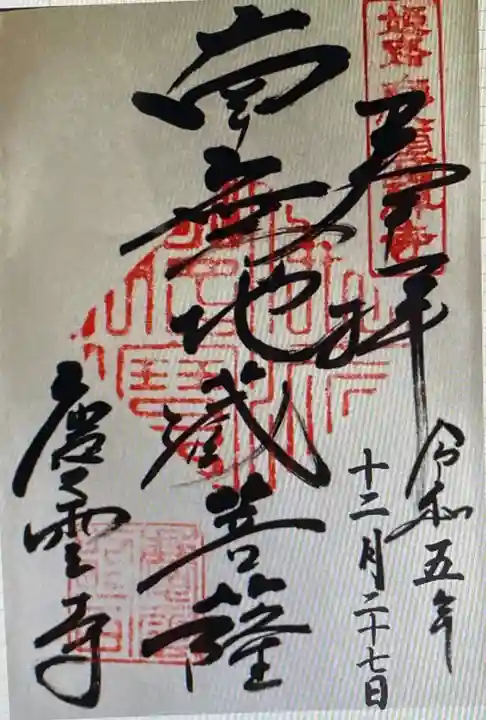 奉拝
令和五年
十二月二十七日
南無地蔵菩薩
慶雲寺